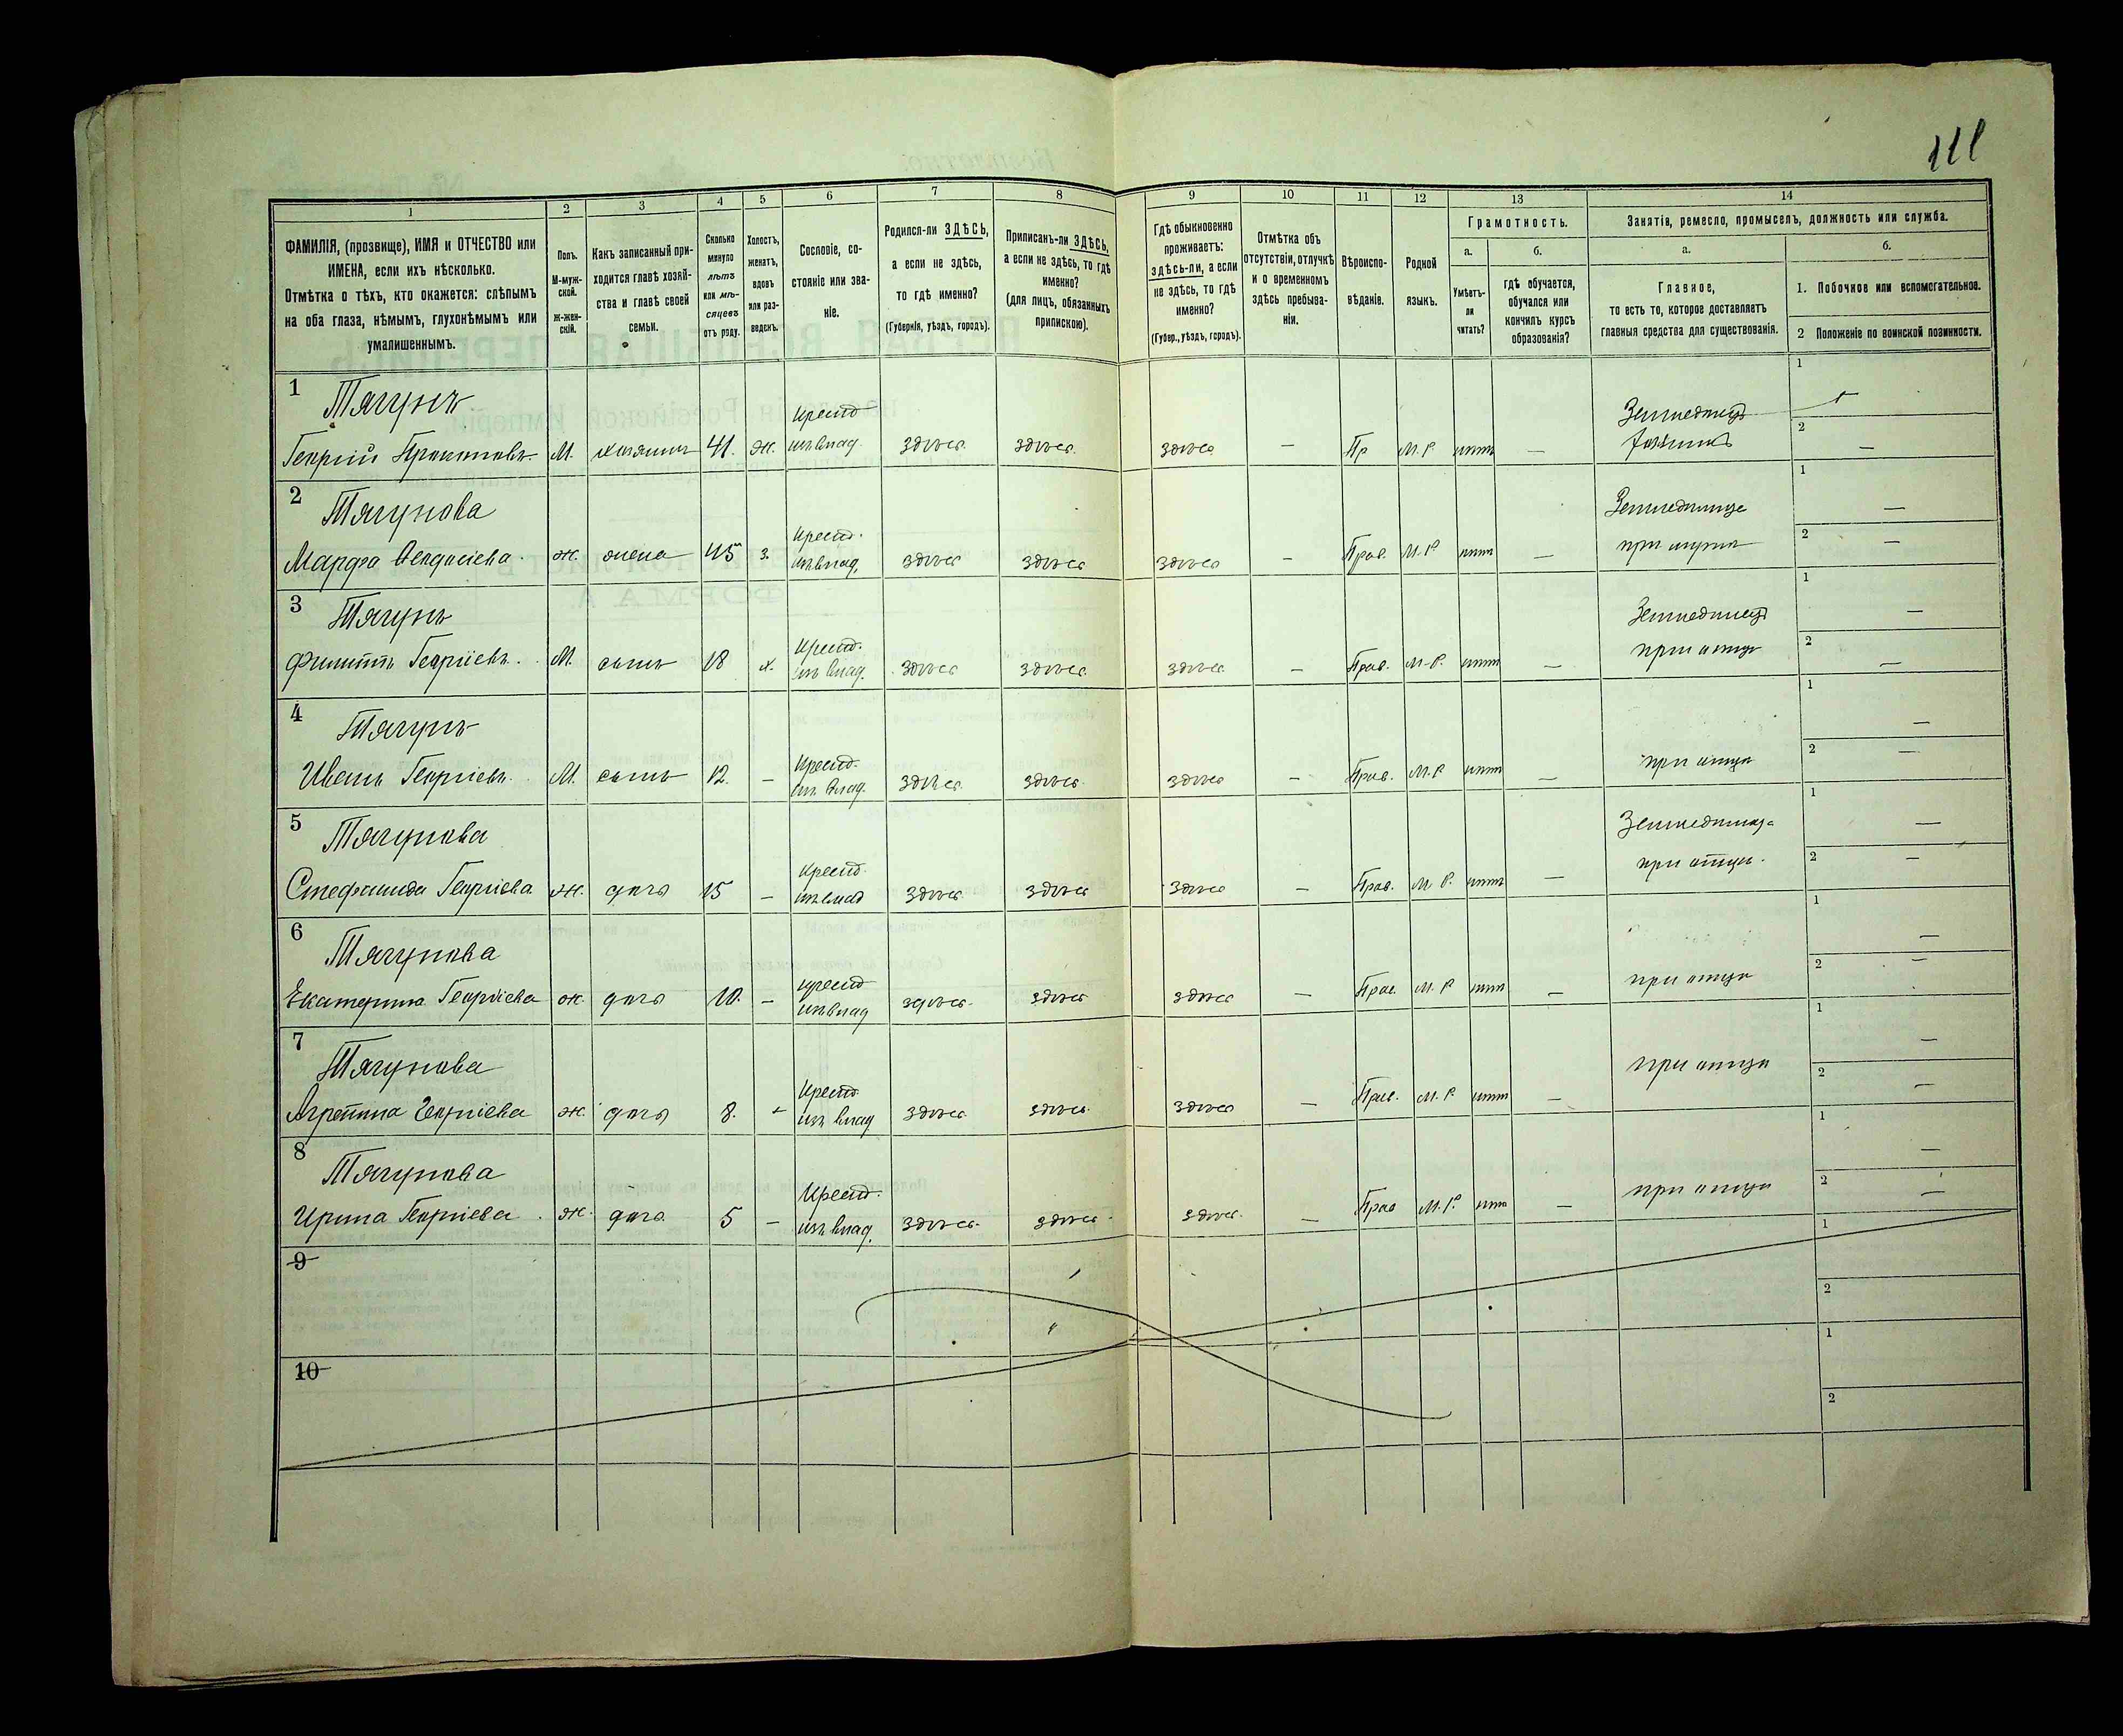 111
1
2
3
4
5
6
7
8
9
10
11
12
13
14
ФАМИЛІЯ, (прозвище), ИМЯ и ОТЧЕСТВО или
ИМЕНА, если ихъ нѣсколько.
Отмѣтка о тѣхъ, кто окажется: слѣпымъ
на оба глаза, нѣмымъ, глухонѣмымъ или
умалишеннымъ.
Полъ.
М-муж-
ской.
Ж-жен-
скій.
Какъ записанный при-
ходится главѣ хозяй-
ства и главѣ своей
семьи.
Сколько
минуло
лѣтъ
или мѣ-
сяцевъ
отъ роду.
Холостъ,
женатъ,
вдовъ
или раз-
веденъ.
Сословіе, со-
стояніе или зва-
ніе.
Родился-ли ЗДѢСЬ,
а если не здѣсь,
то гдѣ именно?
(Губернія, уѣздъ, городъ).
Приписанъ-ли ЗДѢСЬ,
а если не здѣсь, то гдѣ
именно?
(для лицъ, обязанныхъ
припискою).
Гдѣ обыкновенно
проживаетъ:
здѣсь-ли, а если
не здѣсь, то гдѣ
именно?
(Губер., уѣздъ, городъ).
Отмѣтка объ
отсутствіи, отлучкѣ
и о временномъ
здѣсь пребыва-
ніи.
Вѣроиспо-
вѣданіе.
Родной
языкъ.
Грамотность.
а.
Умѣетъ-
ли
читать?
б.
гдѣ обучается,
обучался или
кончилъ курсъ
образованія?
Занятія, ремесло, промыселъ, должность или служба.
а.
Главное,
то есть то, которое доставляетъ
главныя средства для существованія.
б.
1. Побочное или вспомогательное.
2 Положеніе по воинской повинности.
1
Тягунъ
Георгій Прокоповъ М. хозяинъ 41. Ж. крест. изъ влад. здѣсь. здѣсь. здѣсь — Пр М.Р. нѣтъ — Земледѣлецъ хозяинъ
1
2 —
2
Тягунова
Марфа Феодосіева ж. жена 45 з. крест. изъ влад. здѣсь здѣсь здѣсь — Прав. М.Р. нѣтъ — Земледѣлица при мужѣ
1 —
2 —
3
Тягунъ
Филиппъ Георгіевъ. М. сынъ 18 х. крест. изъ влад. здѣсь здѣсь здѣсь — Прав. М.Р. нѣтъ — Земледѣлецъ при отцѣ
1 —
2 —
4
Тягунъ
Иванъ Георгіевъ. М. сынъ 12. — крест. изъ влад. здѣсь здѣсь здѣсь — Прав. М.Р. нѣтъ — при отцѣ
1 —
2 —
5
Тягунова
Стефанида Георгіева ж. дочь 15 — крест. изъ влад здѣсь здѣсь здѣсь — Прав. М.Р. нѣтъ — Земледѣлица при отцѣ.
1 —
2 —
6
Тягунова
Екатерина Георгіева ж. дочь 10. — крест изъ влад здѣсь здѣсь здѣсь — Прав. М.Р. нѣтъ — при отцѣ
1 —
2 —
7
Тягунова
Агрепина Георгіева ж. дочь 8. — крест. изъ влад здѣсь здѣсь здѣсь — Прав. М.Р. нѣтъ — при отцѣ
1 —
2 —
8
Тягунова
Ирина Георгіева. ж. дочь 5 — Крест. изъ влад. здѣсь. здѣсь. здѣсь. — Прав М.Р. нѣтъ — при отцѣ
1 —
2 —
9
1
2
10
1
2